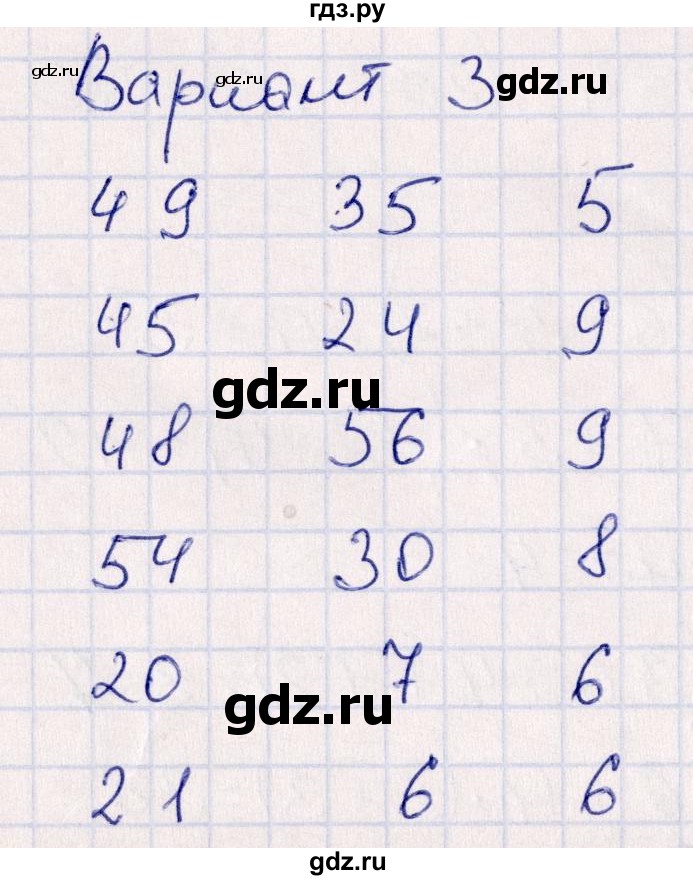 гдз.ру
gdz.ru gdz.ru gdz.ru
Вариант 3
49 35 5
45 24 9
gdz.ru
48 56 9
54 30 8
20 7 6
gdz.ru
21 6 6
gdz.ru